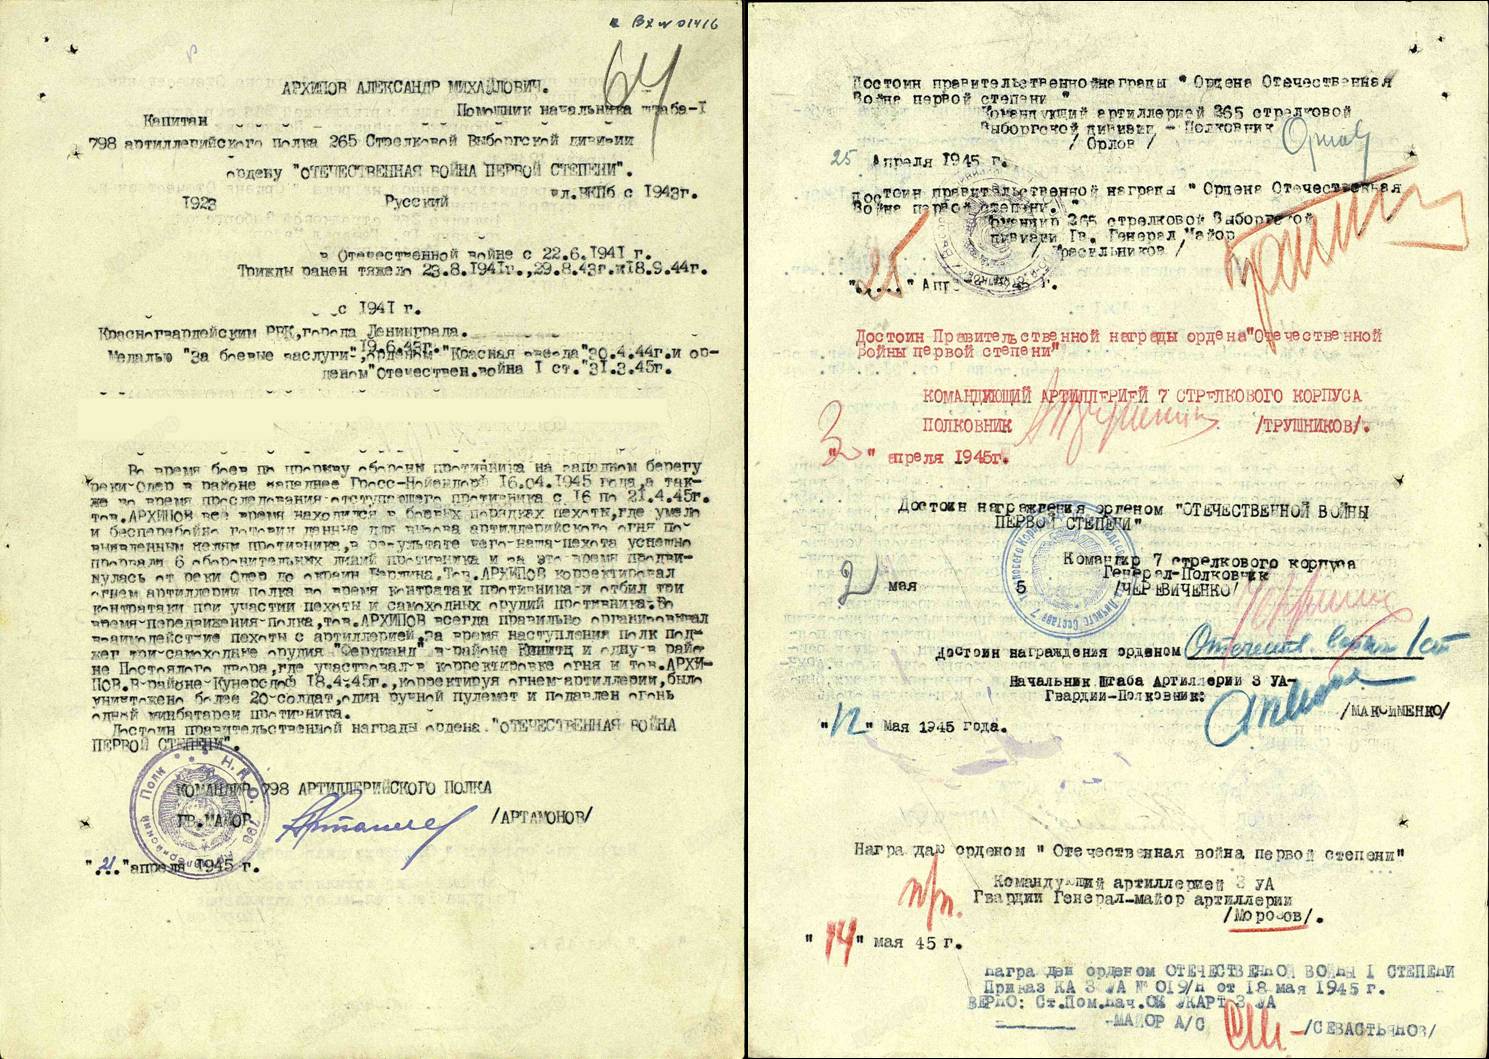 Вх № 01416
64
АРХИПОВ АЛЕКСАНДР МИХАЙЛОВИЧ.
Помощник начальника штаба-I
Капитан
798 артиллерийского полка 265 Стрелковой Выборгской дивизии
ордену "ОТЕЧЕСТВЕННАЯ ВОЙНА ПЕРВОЙ СТЕПЕНИ".
1923 Русский чл.ВКПб с 1943г.
в Отечественной войне с 22.6.1941 г.
Трижды ранен тяжело 23.8.1941г.,29.8.43г.и18.9.44г.
с 1941 г.
Красногвардейским РВК,города Ленинграда.
19.6.43г.
Медалью "За боевые заслуги",орденом"Красная звезда"30.4.44г.и ор-
деном"Отечествен.война I ст."31.3.45г.
Во время боев по прорыву обороны противника на западном берегу
реки-Одер в районе западнее Гросс-Нойендорф 16.04.1945 года,а так-
же во время преследования-отступающего противника с 16 по 21.4.45г.
тов.АРХИПОВ все время находился в боевых порядках пехоты,где умело
и бесперебойно готовил данные для вызова артиллерийского огня по
выявленным целям противника,в результате чего-наша-пехота успешно
прорвала 6 оборонительных линий противника и за это время продви-
нулась от реки Одер до окраин Берлина.Тов.АРХИПОВ корректировал
огнем артиллерии полка во время контратак противника-и отбил три
контратаки при участии пехоты и самоходных орудий противника.Во
время-передвижения-полка,тов.АРХИПОВ всегда правильно организовывал
взаимодействие пехоты с артиллерией,за время наступления полк под-
жег три-самоходные орудия "Фердинанд" в-районе и одну-в райо-
не Постоялого двора,где участвовал-в корректировке огня и тов.АРХИ-
ПОВ.В-районе Кунерсдоф 18.4.45г.,корректируя огнем-артиллерии,было
уничтожено более 20-солдат,один ручной пулемет и подавлен огонь
одной минбатареи противника.
Достоин правительственной награды ордена "ОТЕЧЕСТВЕННАЯ ВОЙНА
ПЕРВОЙ СТЕПЕНИ".
КОМАНДИР 798 АРТИЛЛЕРИЙСКОГО ПОЛКА
ГВ.МАЙОР /АРТАМОНОВ/
"21"апреля 1945 г.
Н.К.О. 798 Артиллерийский Полк
Достоин правительственнойнаграды " Ордена Отечественная
Война первой степени "
Командующий артиллерией 265 стрелковой
Выборгской дивизии - Полковник
/ Орлов /
25 Апреля 1945 г.
Достоин правительственной награды " Ордена Отечественная
Война первой степени. "
Командир 265 стрелковой Выборгской
дивизии Гв. Генерал Майор
/ Красильников /
"25" Апреля 45 г.
Достоин Правительственной награды ордена"Отечественной
Войны первой степени"
КОМАНДУЮЩИЙ АРТИЛЛЕРИЕЙ 7 СТРЕЛКОВОГО КОРПУСА
ПОЛКОВНИК /ТРУШНИКОВ/.
" " апреля 1945г.
Достоин награждения орденом "ОТЕЧЕСТВЕННОЙ ВОЙНЫ
ПЕРВОЙ СТЕПЕНИ"
Командир 7 стрелкового корпуса
Генерал-Полковник
2 мая 5 /ЧЕРЕВИЧЕНКО/
Достоин награждения орденом Отечеств. война 1 ст
Начальник Штаба Артиллерии 3 УА-
Гвардии-Полковник:
/МАКСИМЕНКО/
"12" Мая 1945 года.
Награждаю орденом " Отечественная война первой степени"
Командующий артиллерией 3 УА
Гвардии Генерал-майор артиллерии
/Морозов/.
"14" мая 45 г.
награжден орденом ОТЕЧЕСТВЕННОЙ ВОЙНЫ I СТЕПЕНИ
Приказ КА 3 УА № 019/н от 18 мая 1945 г.
ВЕРНО: Ст.Пом.нач.ОК УКАРТ 3 УА
-МАЙОР А/С /СЕВАСТЬЯНОВ/